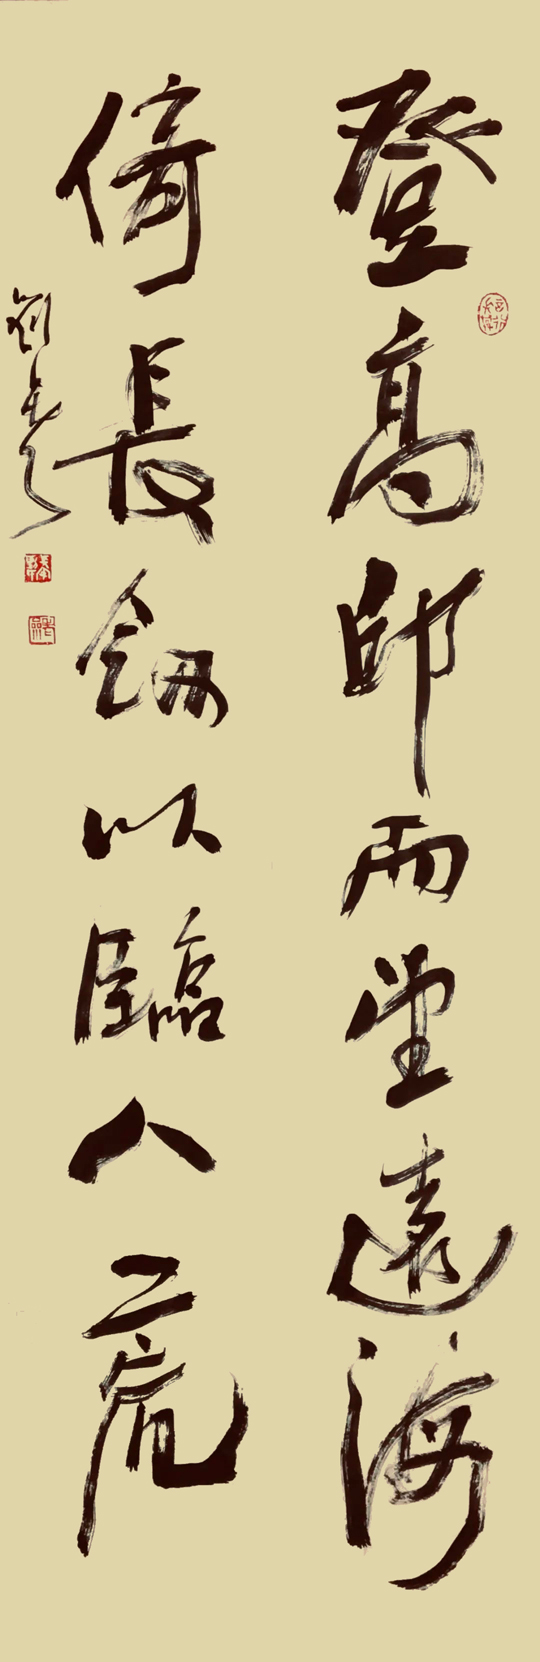 登高邱而望遠海
倚長劍以臨八荒
劉